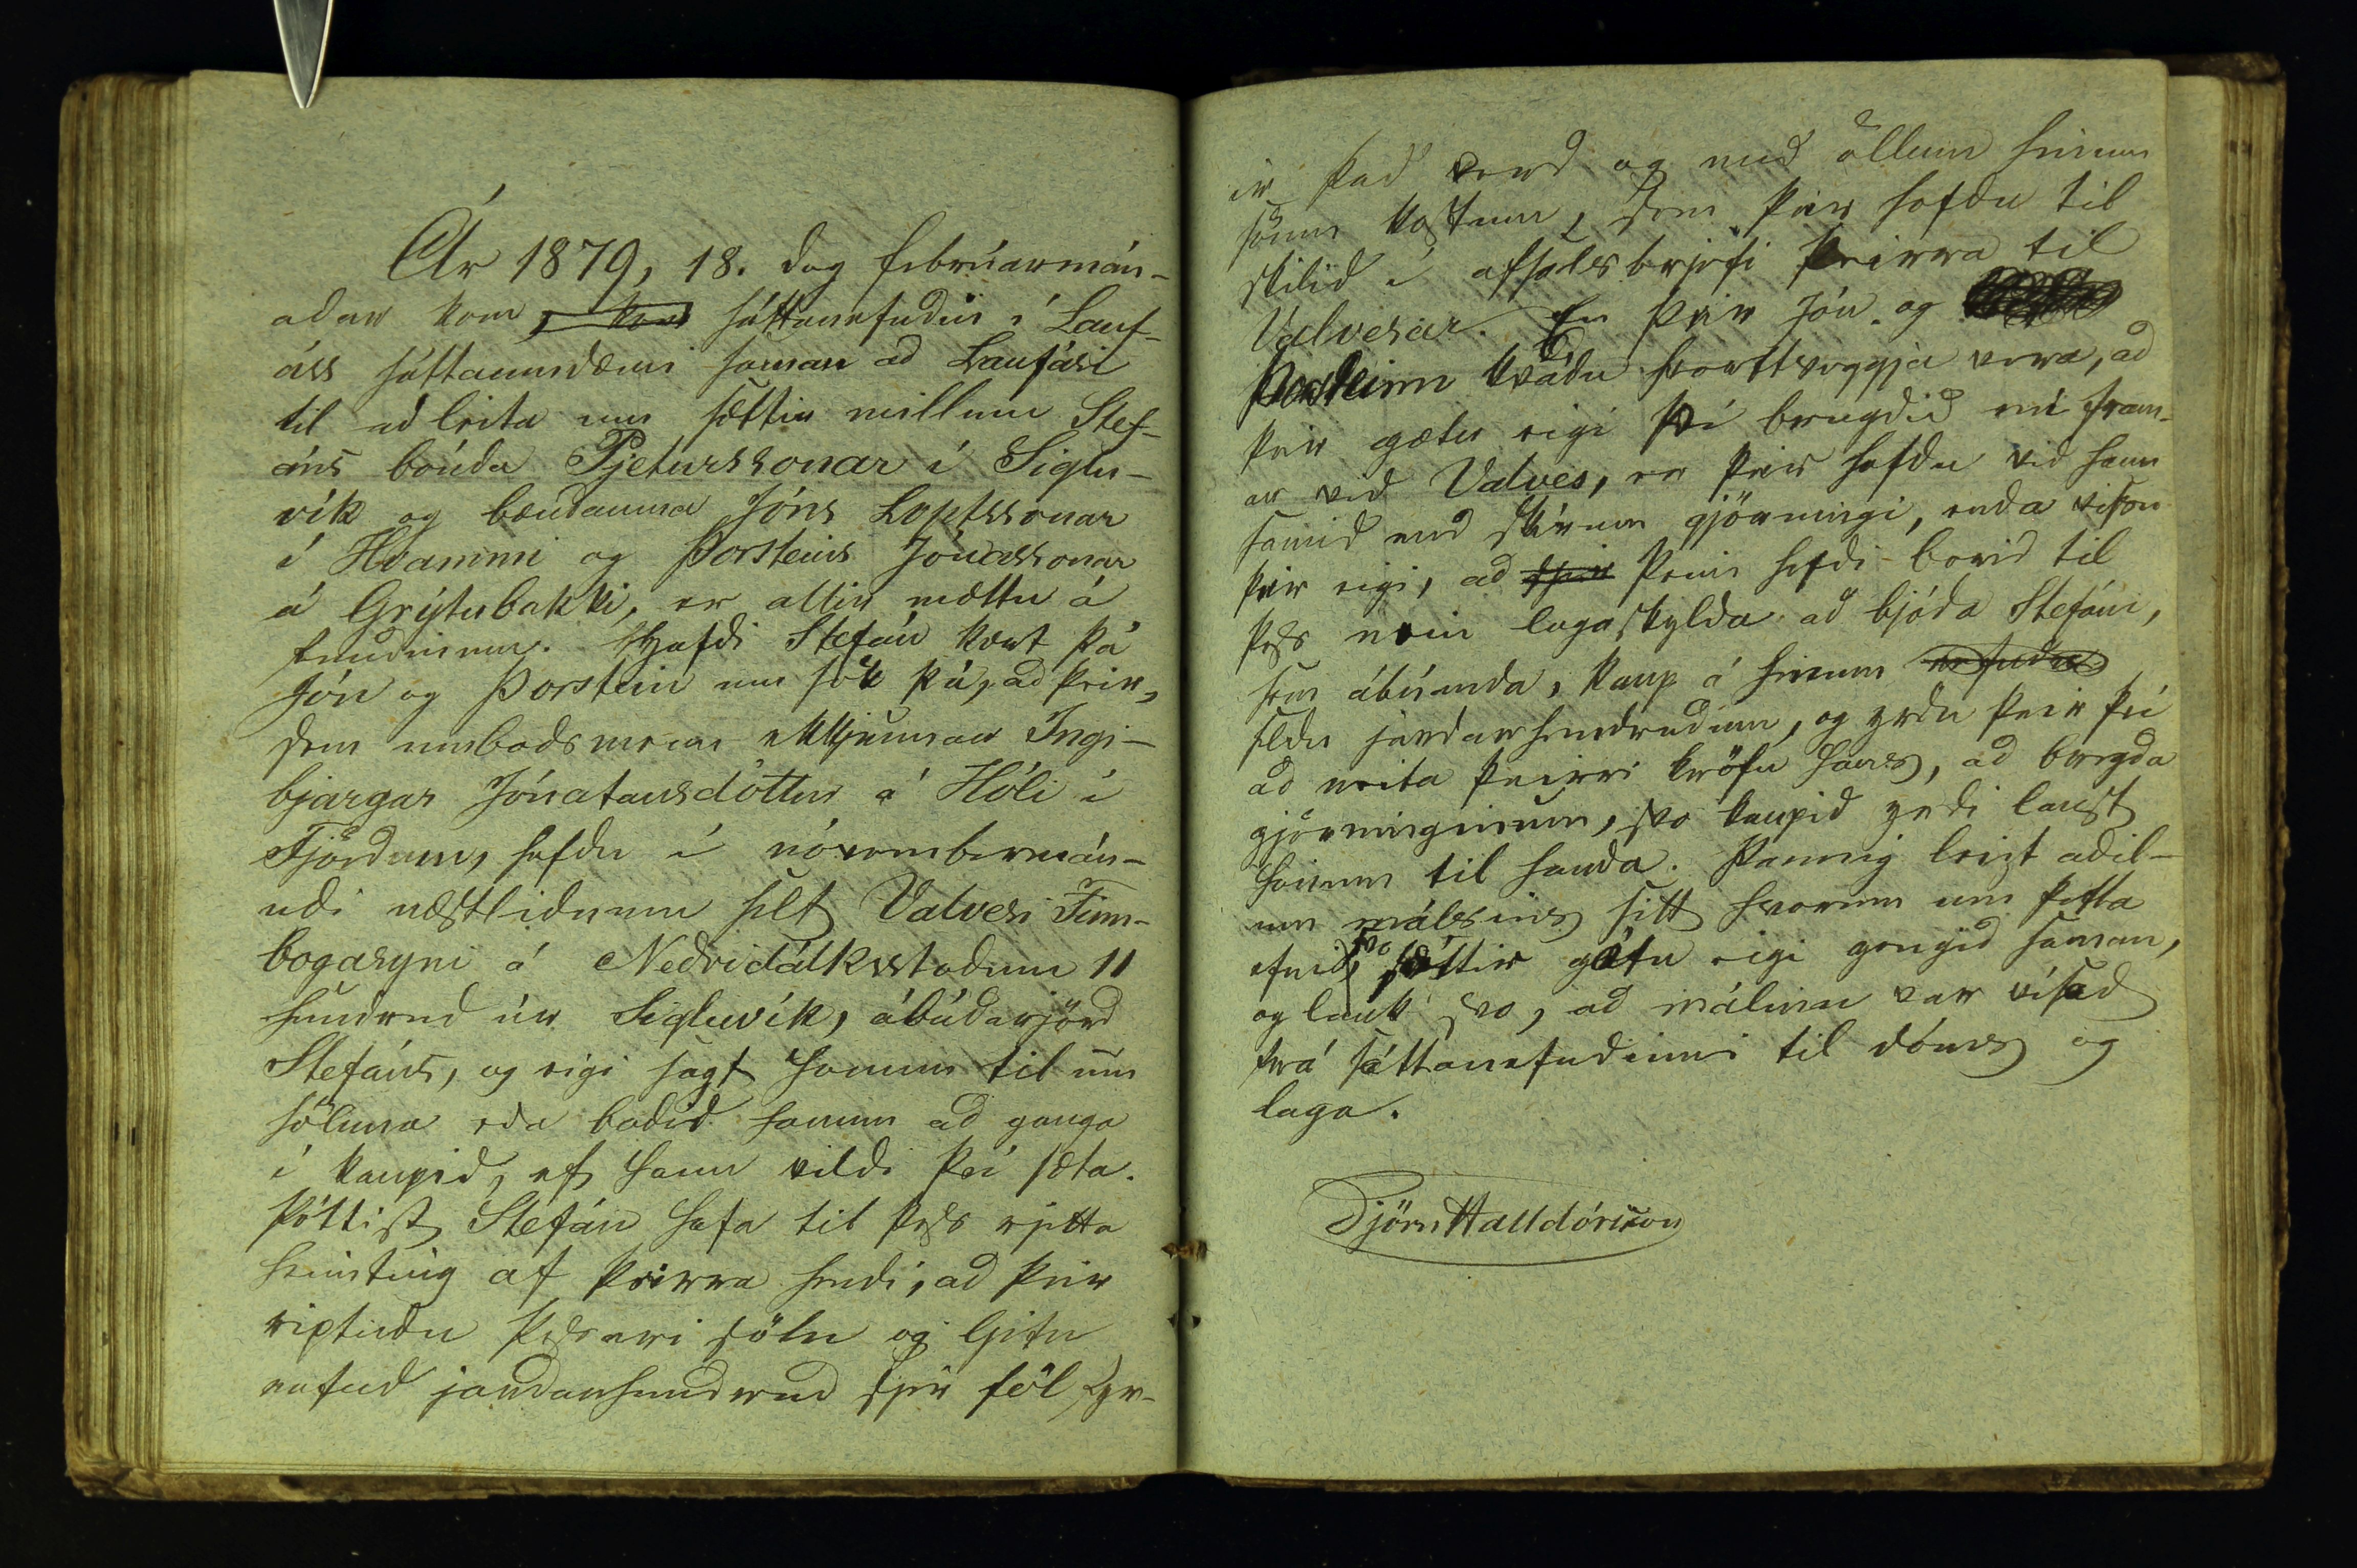 Ár 1879, 18. dag febrúarmán-
aðar kom, kom sáttanefndin í Lauf-
áss sáttaumdæmi saman að Laufási
til að leita um sættir millum Stef-
áns bónda Pjeturssonar í Siglu-
vík og bændanna Jóns Loptssonar
í Hvammi og Þorsteins Jónassonar
á Grýtubakki, er allir mættu á
fundinum. Hafði Stefán kært þá
Jón og Þorstein um sök þá, að þeir,
sem umboðsmenn ekkjunnar Ingi-
bjargar Jónatansdóttur á Hóli í
Fjörðum, hefðu í nóvembermán-
uði næstliðnum selt Valvesi Finn-
bogasyni á Neðridálksstöðum 11
hundruð úr Sigluvík, ábúðarjörð
Stefáns, og eigi sagt honum til um
söluna eða boðið honum að ganga
í kaupið, ef hann vildi því sæta.
Þóttist Stefán hafa til þess rjetta
heimting af þeirra hendi, að þeir
riptuðu þessari sölu og ljetu
nefnd jarðarhundruð sjer föl fyr-
ir það verð og með öllum hinum
sömu kostum, sem þeir hefðu til
skilið í afsalsbrjefi þeirra til
Valvesar. En þeir Jón og
Þorsteinn kváðu hvorttveggja vera, að
þeir gætu eigi því brugðið nú fram-
ar við Valves, er þeir hefðu við hann
samið með skírum gjörningi, enda vissu
þeir eigi, að þeim hefði borið til
þess nein lagaskylda að bjóða Stefáni,
sem ábúanda, kaup á hinum nefndu
seldu jarðarhundruðum, og yrðu þeir því
að neita þeirri kröfu hans, að bregða
gjörningnum, svo kaupið yrði laust
honum til handa. Þannig leizt aðil-
um málsins sitt hvorum um þetta
efni, svo sættir gátu eigi gengið saman,
og lauk svo, að málinu var vísað
frá sáttanefndinni til dóms og
laga.
Björn Halldórsson